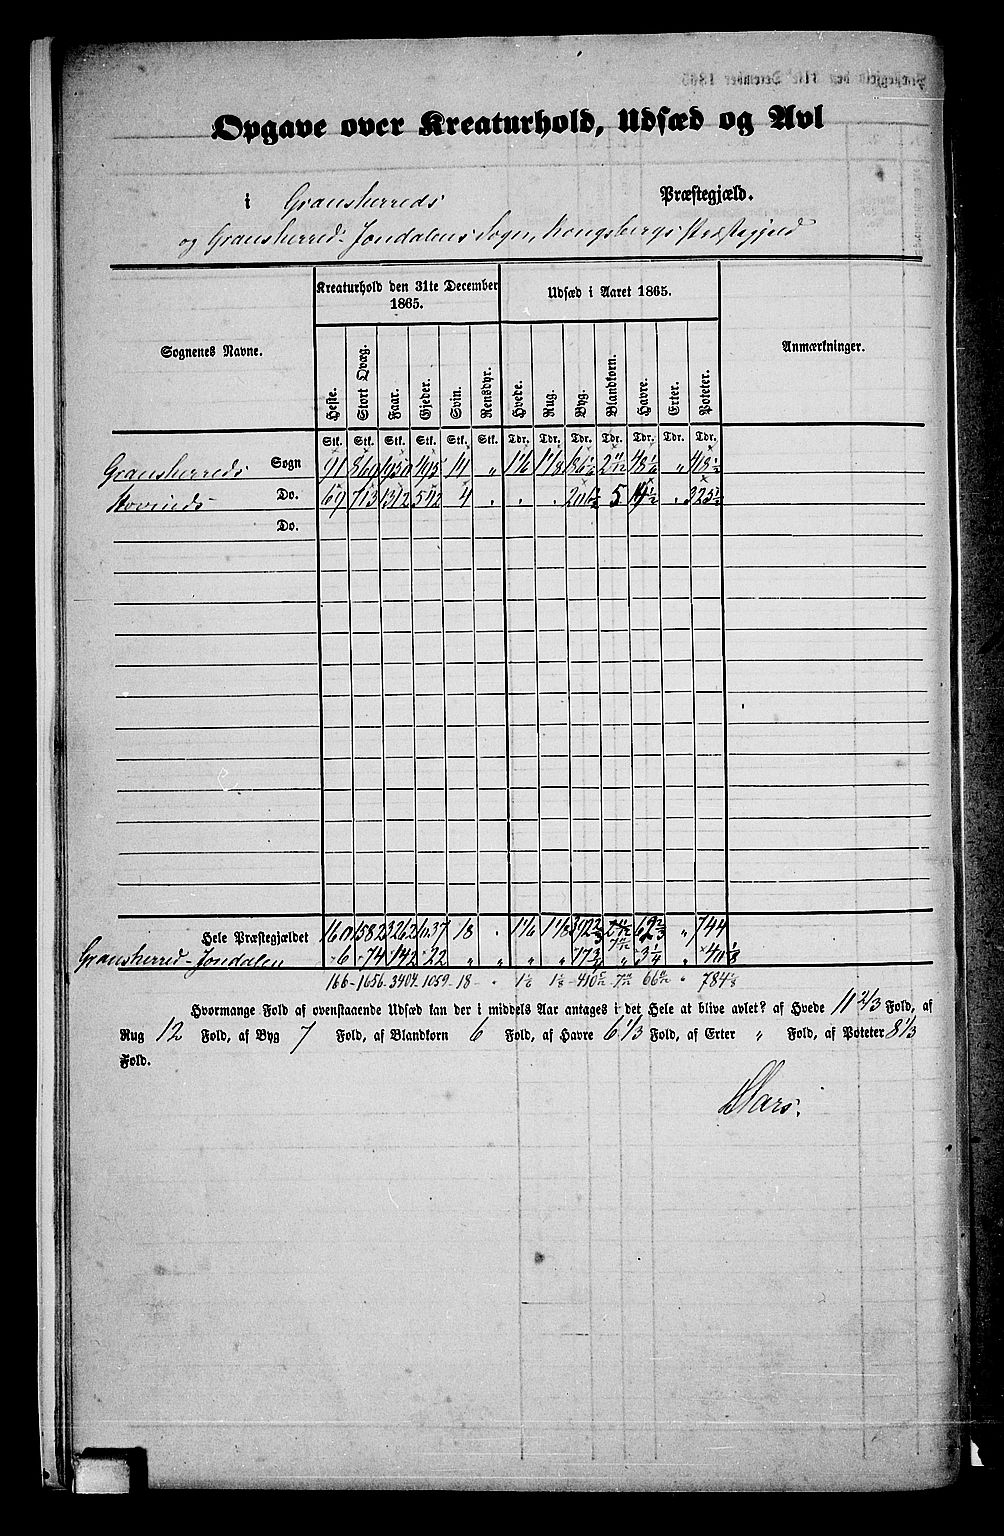 Opgave over Kreaturhold, Udsæd og Avl
i Gransherreds Præstegjæld.
og Gransherred-Jondalens Sogn, Kongsbergs Præstegjeld
Sognenes Navne. Kreaturhold den 31te December 1865. Udsæd i Aaret 1865. Anmærkninger.
Heste. Stort Qvæg. Faar. Gjeder. Svin. Rensdyr. Hvede. Rug. Byg. Blandkorn. Havre. Erter. Poteter.
Stk. Stk. Stk. Stk. Stk. Stk. Tdr. Tdr. Tdr. Tdr. Tdr. Tdr. Tdr.
Gransherreds Sogn 91 869 1950 495 14 " 1 1/6 1 1/8 2 11/12 48 1/6 " 418 1/2
Hovinds Do. 69 713 1312 542 4 5 325 1/2
Do.
Hele Præstegjældet 160 1582 3262 1037 18 1 1/6 1 1/8 392 2/3 62 2/3 " 744
Gransherred-Jondalen 6 74 142 22 " " " " 17 3/4 " 3 1/4 " 40 1/8
166 - 1656 - 3404 1059 - 18 - 784 1/8
Hvormange Fold af ovenstaaende Udsæd kan der i middels Aar antages i det Hele at blive avlet? af Hvede 11 2/3 Fold, af
Rug 12 Fold, af Byg 7 Fold, af Blandkorn 6 Fold, af Havre 6 1/3 Fold, af Erter " Fold, af Poteter 8 1/3
Fold.